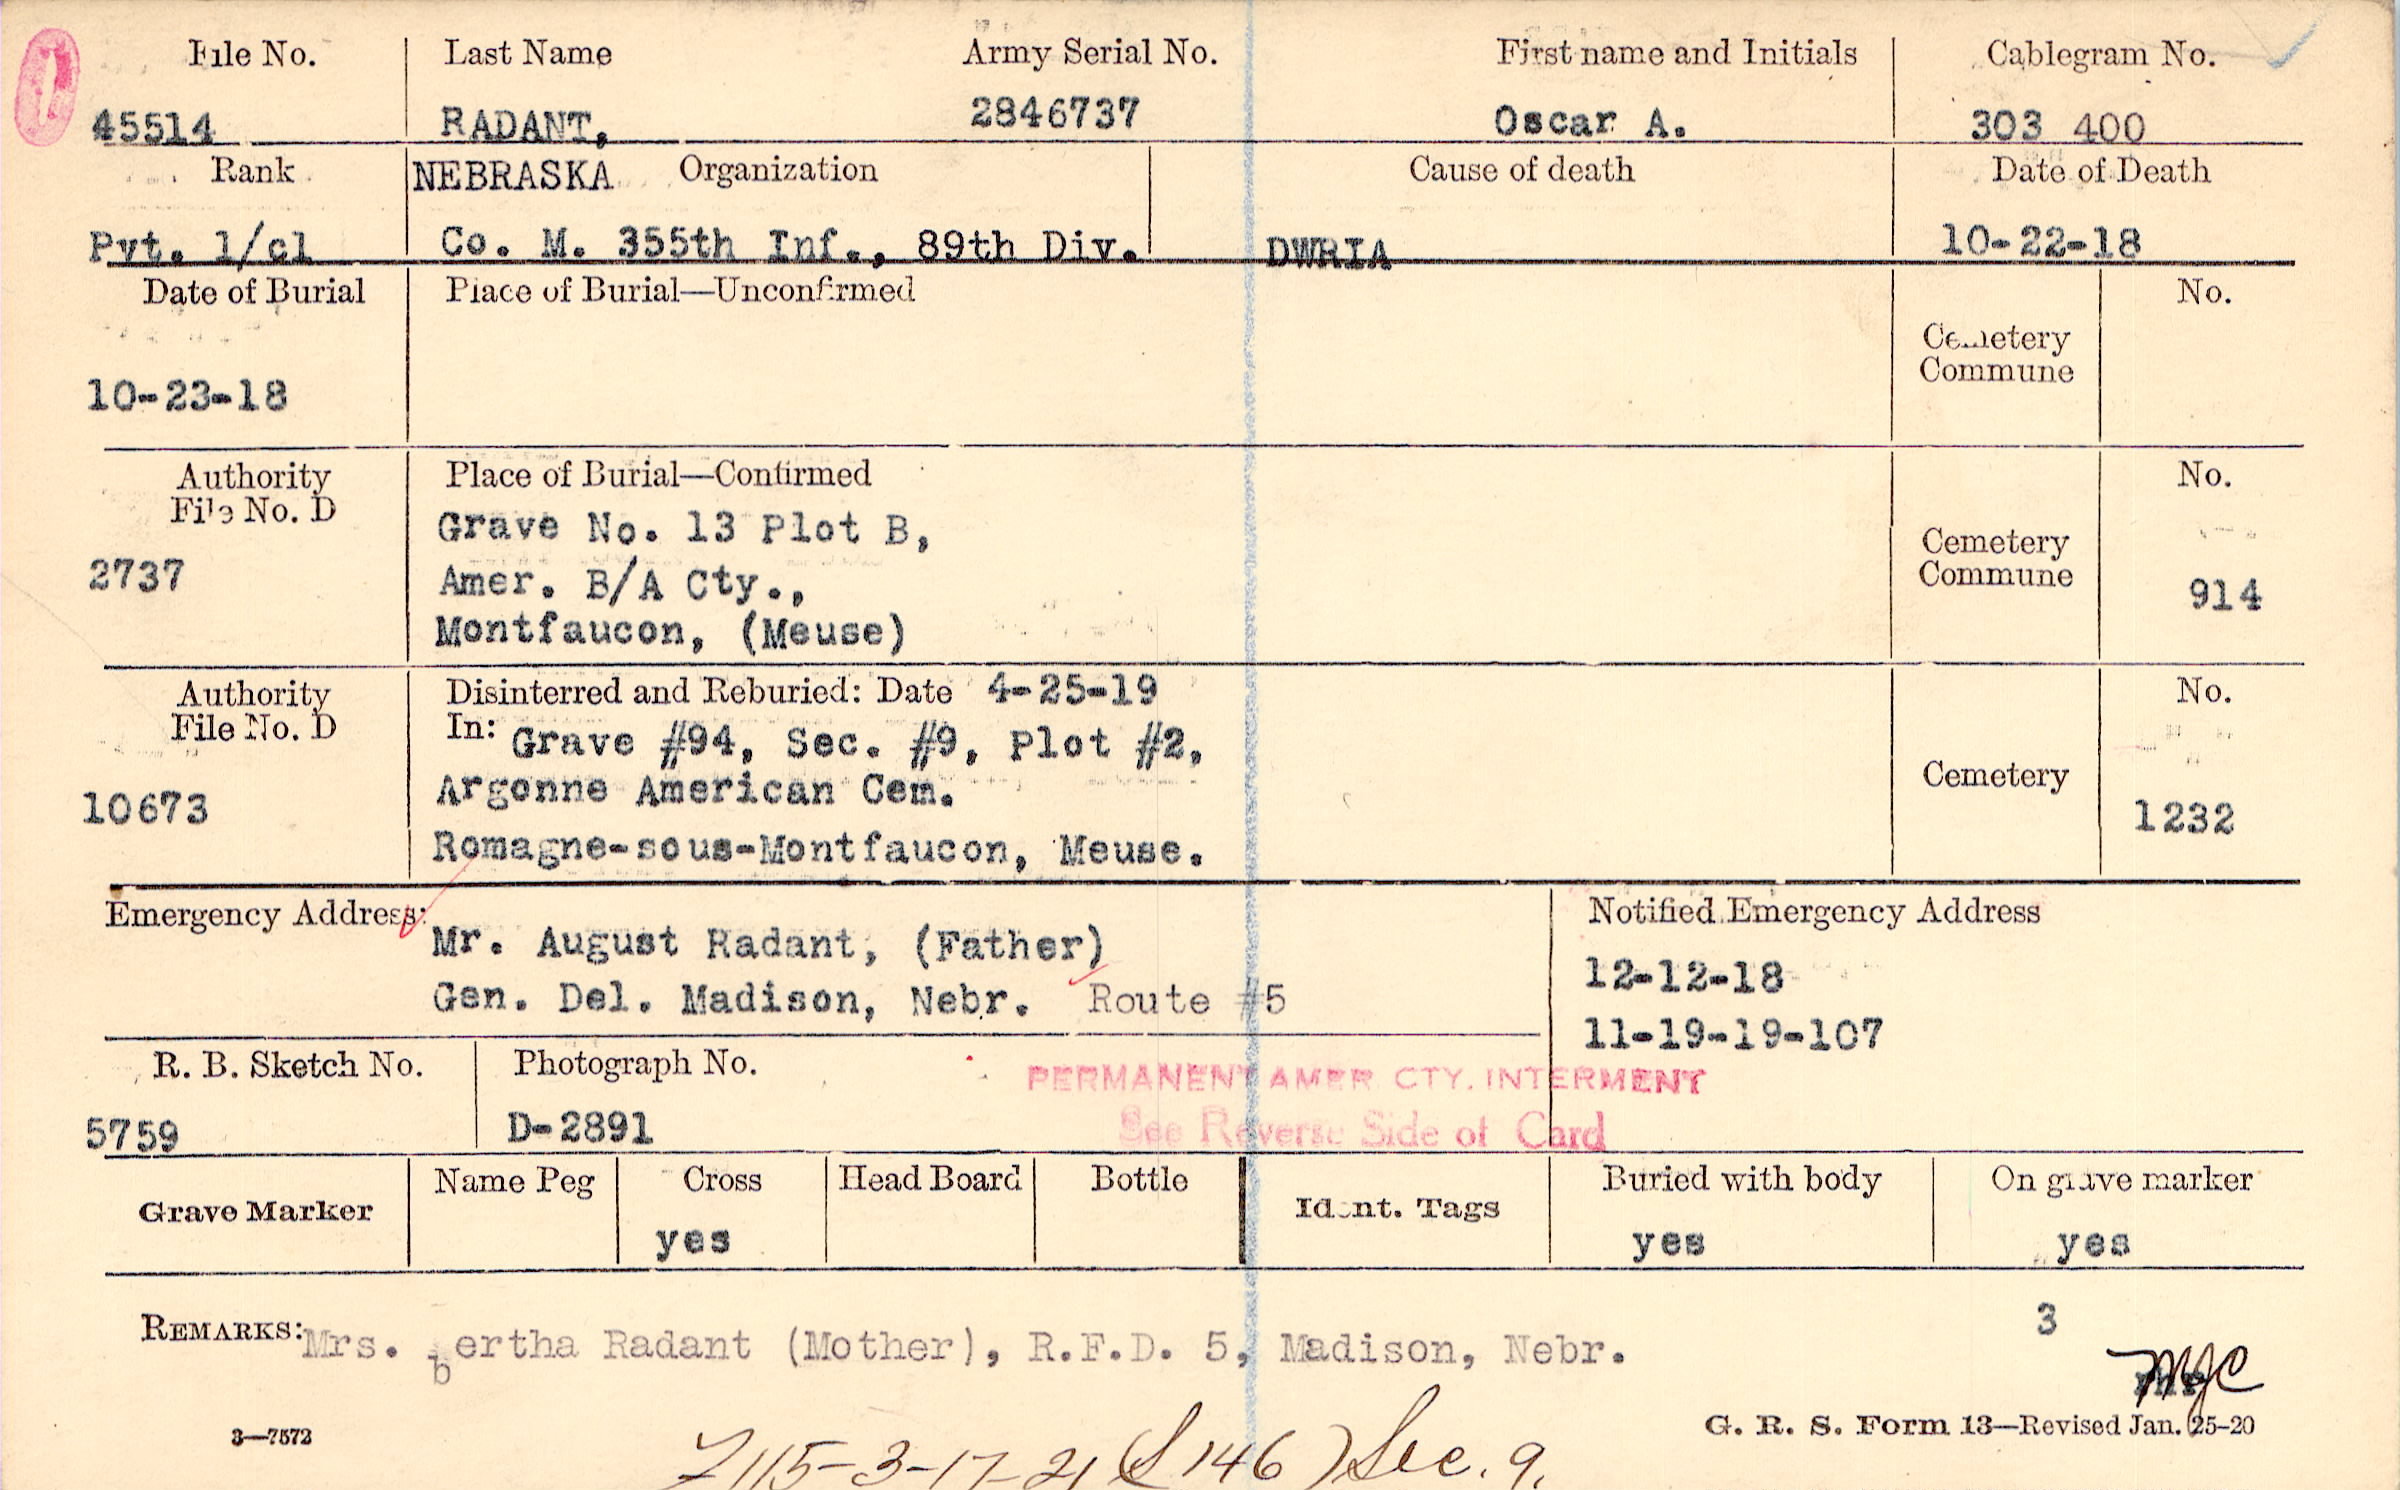 File No. Last Name Army Serial No. First name and Initials Cablegram No.
45514 RADANT, 2846737 Oscar A. 303 400
Rank NEBRASKA Organization Cause of death Date of Death
Pvt. 1/cl Co. M. 355th Inf., 89th Div. DWRIA 10-22-18
Date of Burial Place of Burial—Unconfirmed No.
Cemetery
Commune
10-23-18
Authority Place of Burial—Confirmed No.
File No. D Grave No. 13 Plot B,
Cemetery
2737 Amer. B/A Cty., Commune 914
Montfaucon, (Meuse)
Authority Disinterred and Reburied: Date 4-25-19 No.
File No. D In: Grave #94, Sec. #9, Plot #2,
Argonne American Cem. Cemetery
10673 Romagne-sous-Montfaucon, Meuse. 1232
Emergency Address: Notified Emergency Address
Mr. August Radant, (Father) 12-12-18
Gen. Del. Madison, Nebr. Route #5 11-19-19-107
R. B. Sketch No. Photograph No. PERMANENT AMER CTY. INTERMENT
5759 D-2891 See Reverse Side of Card
Grave Marker Name Peg Cross Head Board Bottle Ident. Tags Buried with body On grave marker
yes yes yes
3
REMARKS: Mrs. bertha Radant (Mother), R.F.D. 5, Madison, Nebr.
MJC
3—7572 G. R. S. Form 13—Revised Jan. 25-20
115-3-17-21 (S 146) Sec. 9.